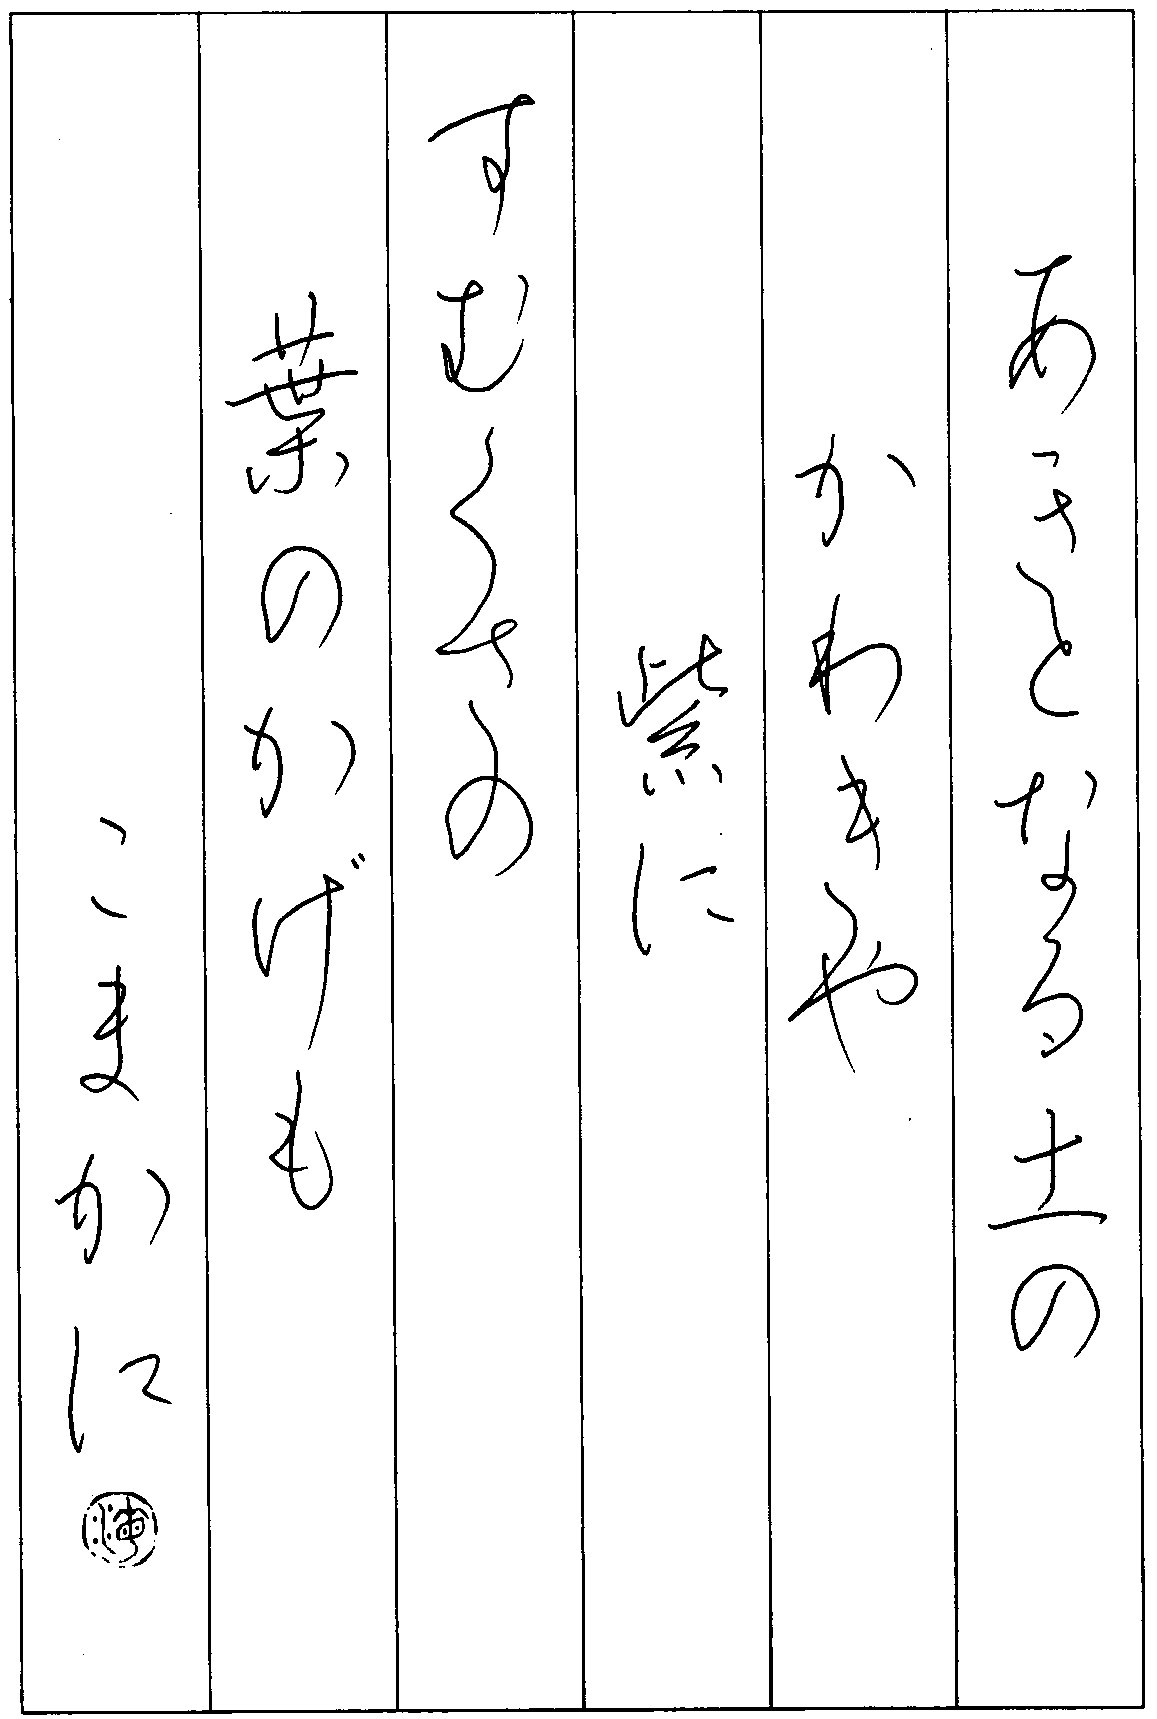 あさとなる土の
かわきや
紫に
すむくさの
葉のかげも
こまかに